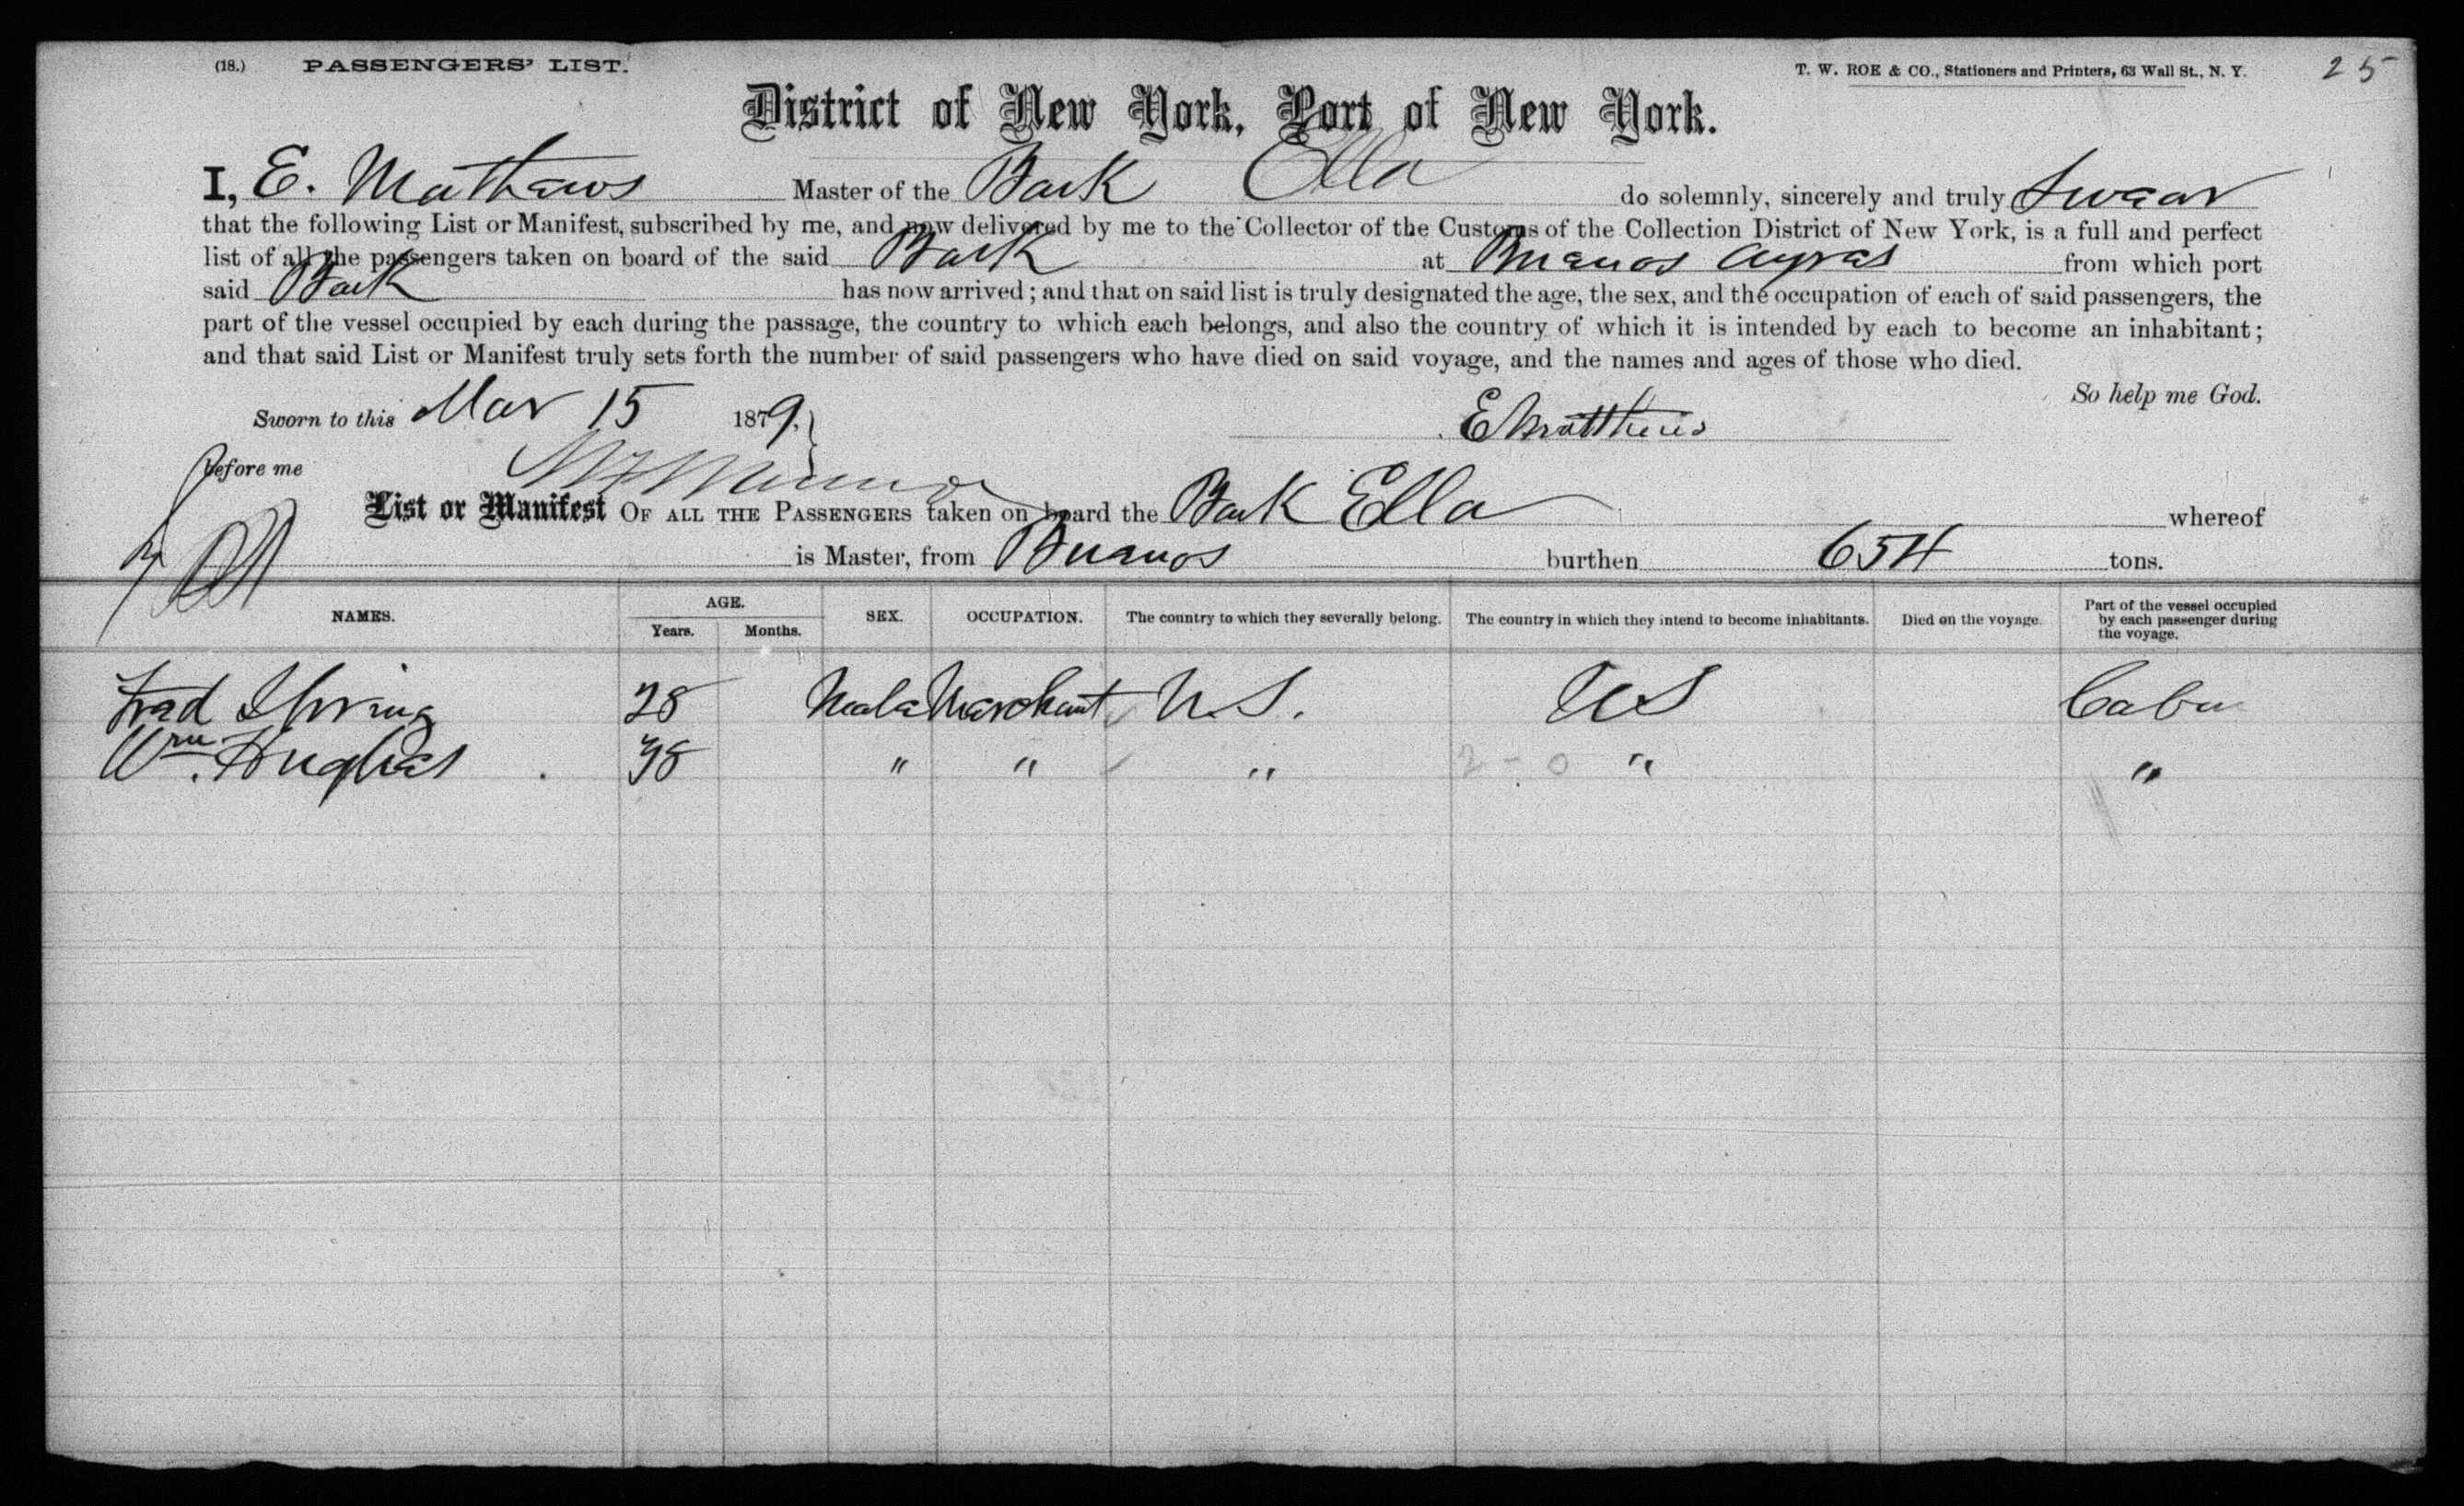 (18.) PASSENGERS' LIST. T. W. ROE & CO., Stationers and Printers, 63 Wall St., N. Y. 25
District of New York, Port of New York.
I, E. Mathews Master of the Bark Ella do solemnly, sincerely and truly Swear
that the following List or Manifest, subscribed by me, and now delivered by me to the Collector of the Customs of the Collection District of New York, is a full and perfect
list of all the passengers taken on board of the said Bark at Buenos Ayres from which port
said Bark has now arrived; and that on said list is truly designated the age, the sex, and the occupation of each of said passengers, the
part of the vessel occupied by each during the passage, the country to which each belongs, and also the country of which it is intended by each to become an inhabitant;
and that said List or Manifest truly sets forth the number of said passengers who have died on said voyage, and the names and ages of those who died.
So help me God.
Sworn to this Mar 15 1879, E Matthews
before me
List or Manifest OF ALL THE PASSENGERS taken on board the Bark Ella whereof
is Master, from Buenos burthen 654 tons.
NAMES. AGE. Years. Months. SEX. OCCUPATION. The country to which they severally belong. The country in which they intend to become inhabitants. Died on the voyage. Part of the vessel occupied by each passenger during the voyage.
Fred 28 Male Merchant U.S. US Cabin
Wm. Hughes 38 " " " 2-0 " "